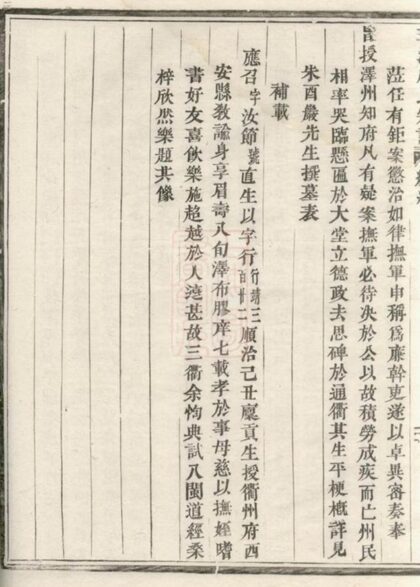 蒞任有鉅案懲治如律撫軍申稱爲廉幹吏遂以卓異審奏奉
旨授澤州知府凡有疑案撫軍必待決於公以故積勞成疾而亡州民
相率哭臨懸匾於大堂立德政去思碑於通衢其生平梗概詳見
朱酉嚴先生撰墓表
補載
應召字汝節號直生以字行行靖三百廿二順治己丑廩貢生授衢州府西
安縣教諭身享眉壽八旬澤布膠庠七載孝於事母慈以撫姪嗜
書好友喜飲樂施超越於人遠甚故三衢余恂典試八閩道經桑
梓欣然樂題其像